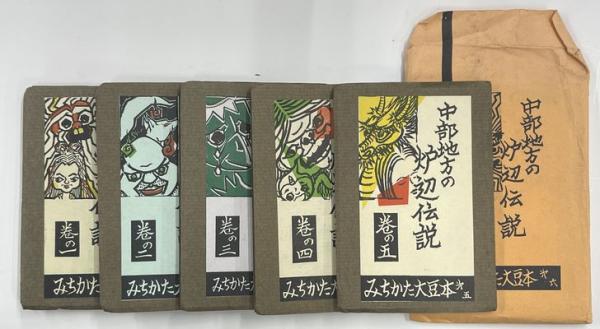 巻の一
みちかた
巻の二
みちかた大
巻の三
みちかた大
巻の四
みちかた大
中部地方の
炉辺伝説
巻の五
みちかた大豆本
五
中部地方の
炉辺伝説
た大豆本
六